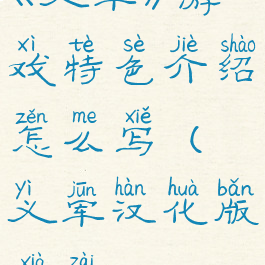 xì tè sè jiè shào
戏特色介绍
zěn me xiě
怎么写（
yì jūn hàn huà bǎn
义军汉化版
xià zài